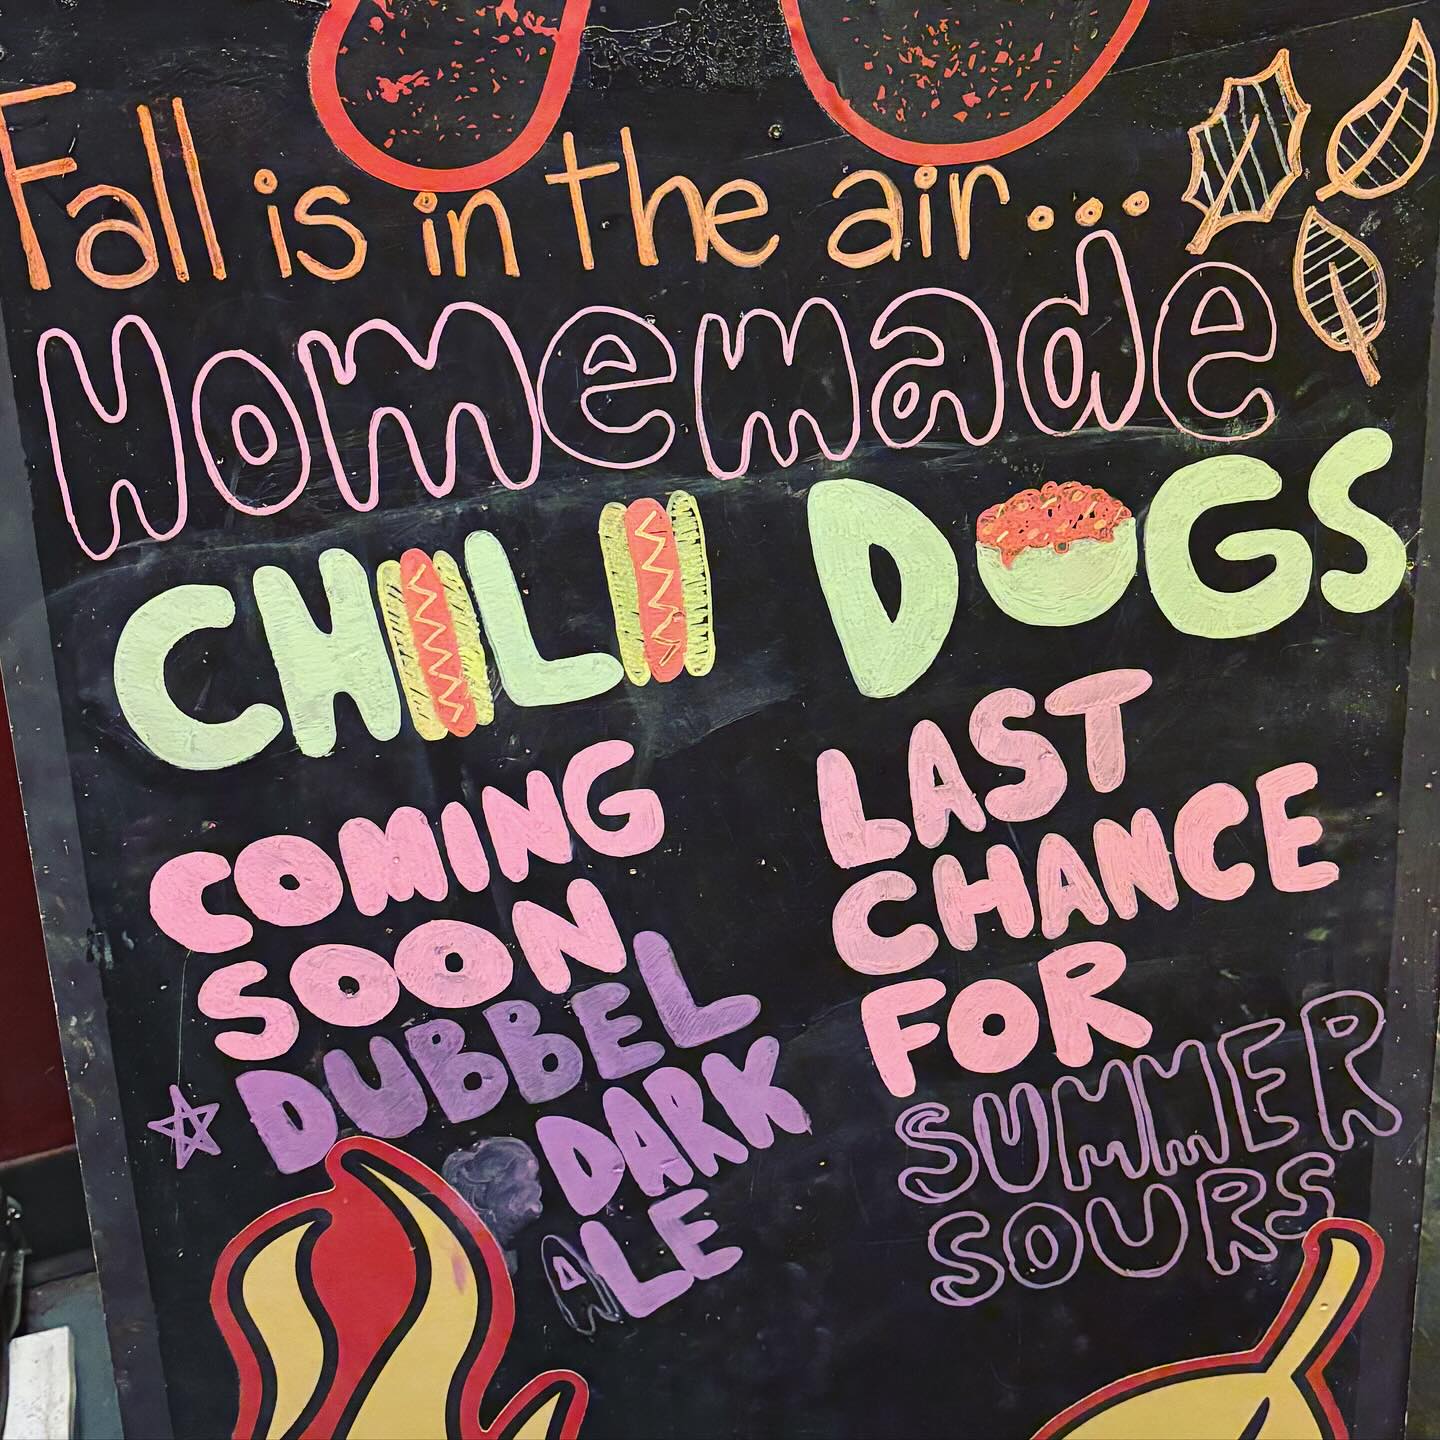 Fall is in the air...
Homemade
CHILI DOGS
COMING
SOON
DUBBEL
DARK
ALE
LAST
CHANCE
FOR
SUMMER
SOURS